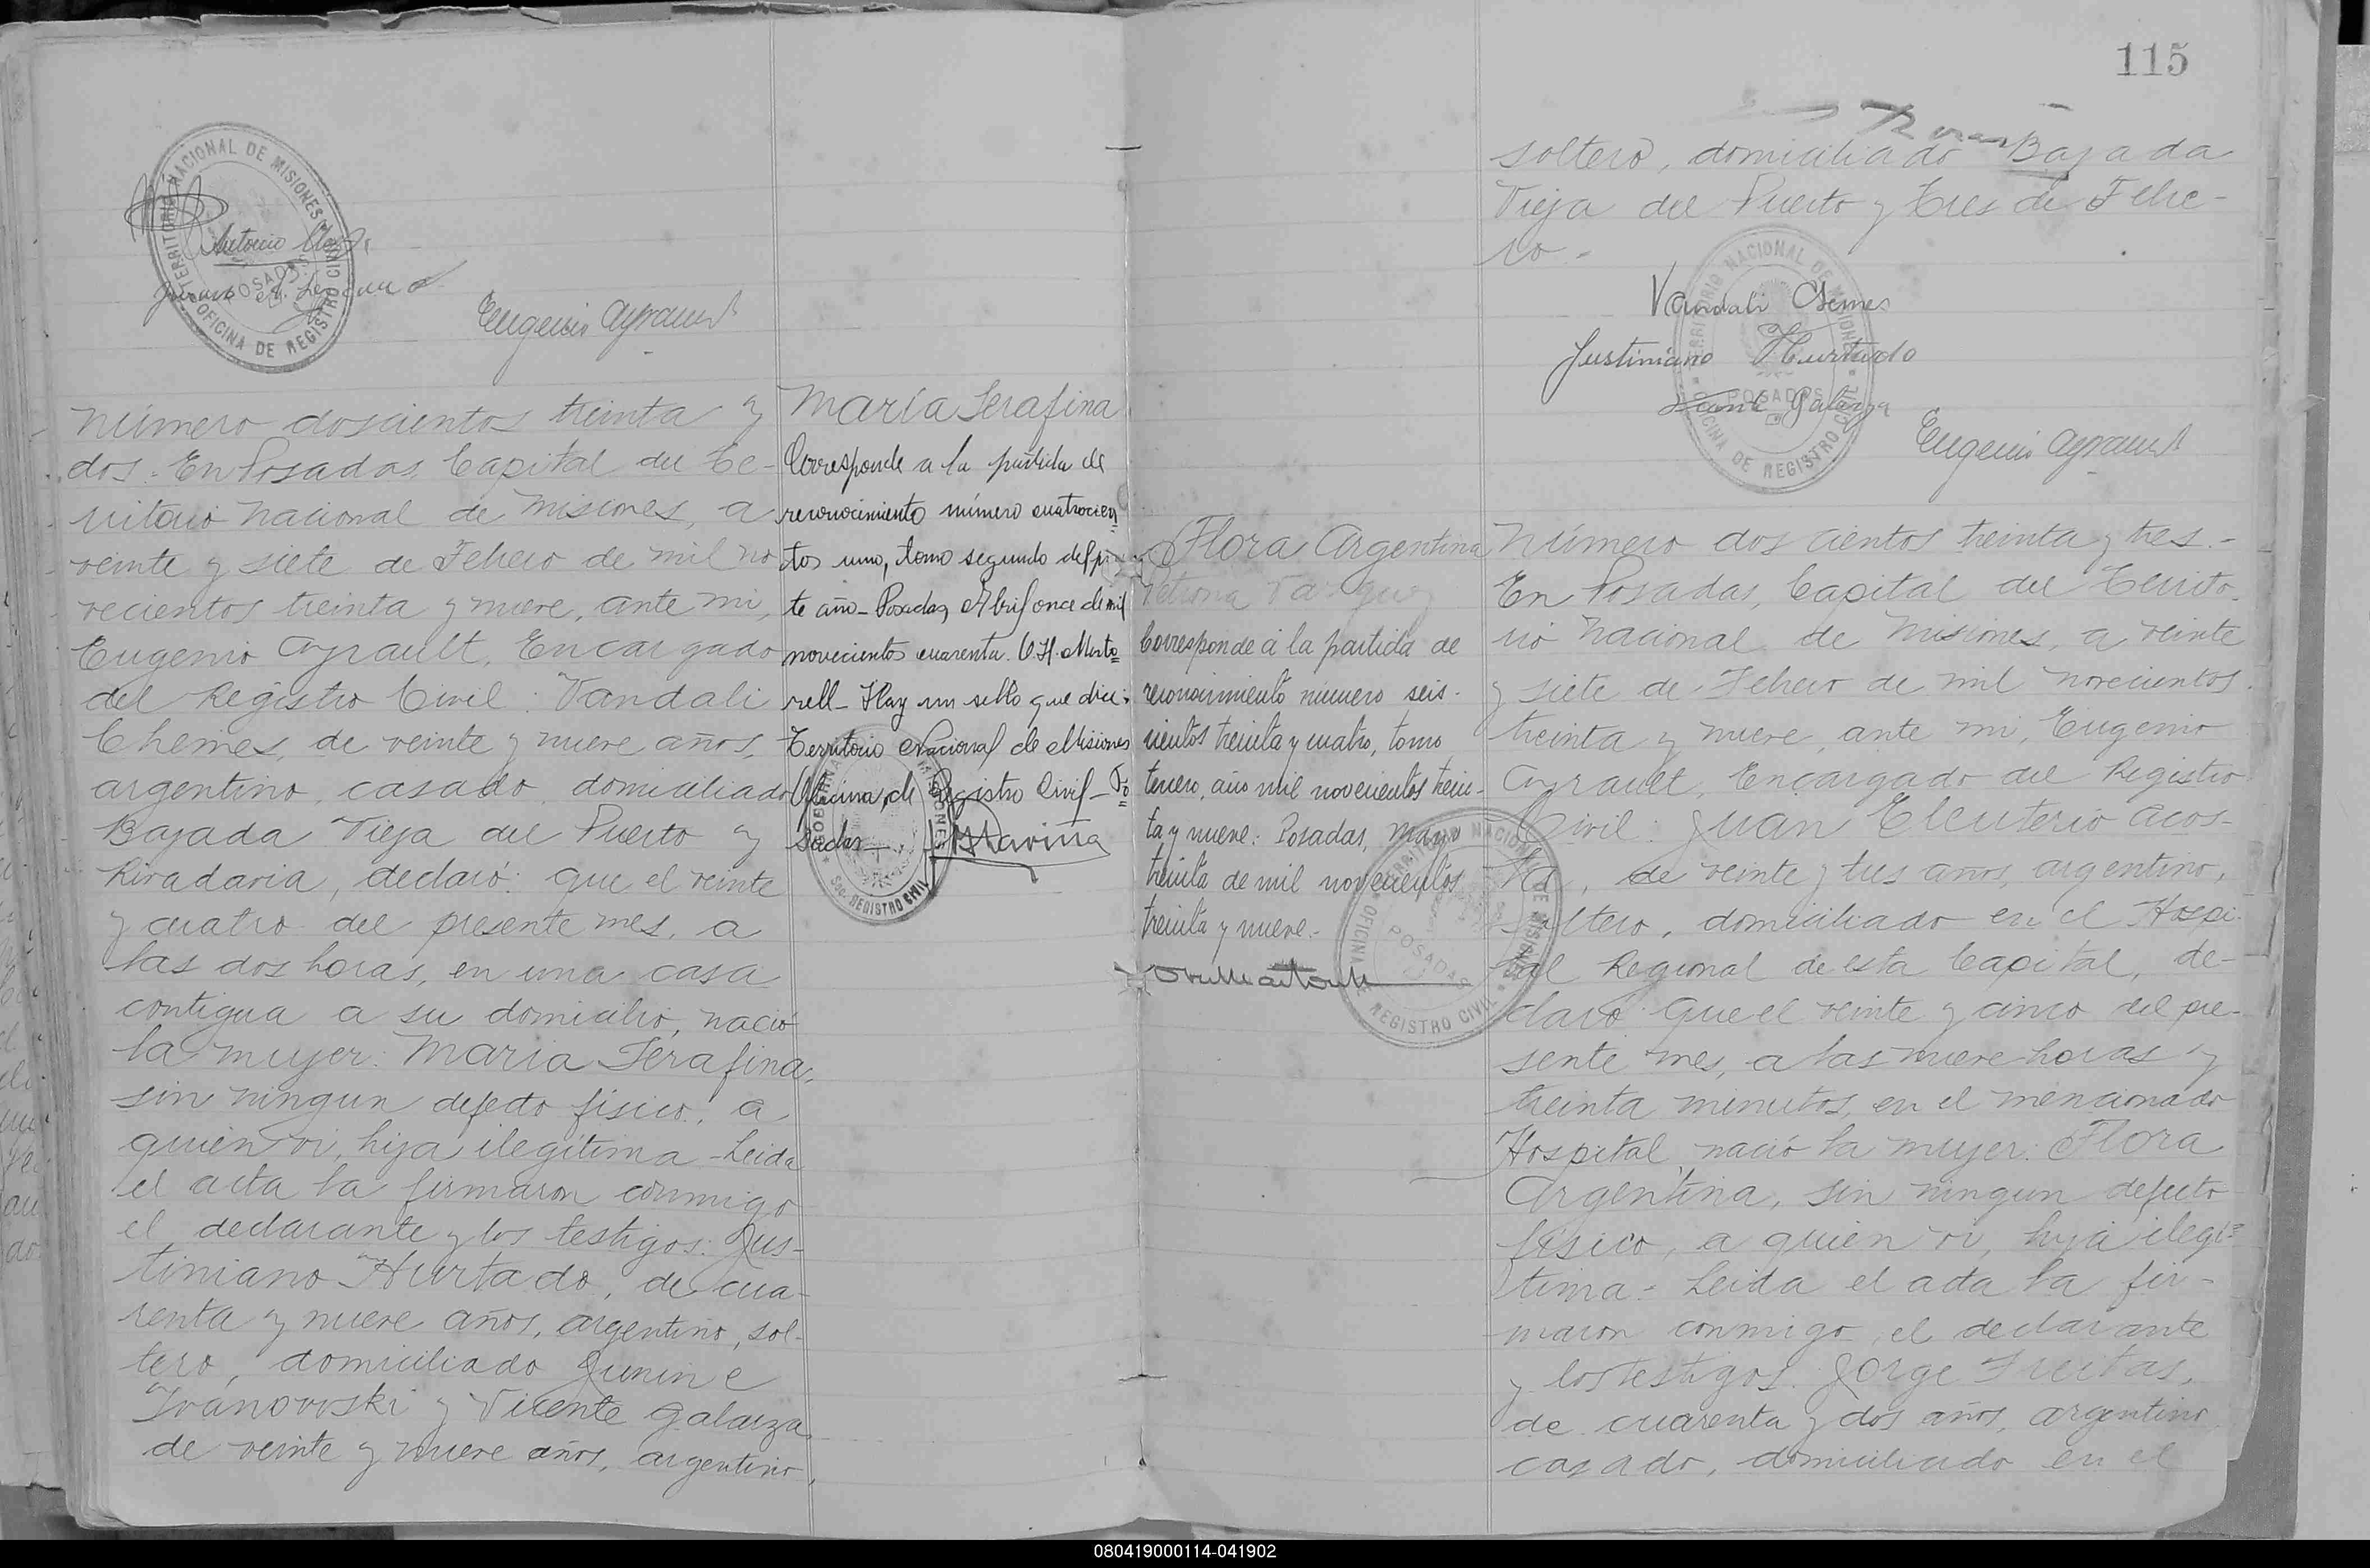 TERRITORIO NACIONAL DE MISIONES
OFICINA DE REGISTRO CIVIL
POSADAS
Antonio
Eugenio Ayrault
Número doscientos treinta y
dos. En Posadas, Capital del Te-
rritorio Nacional de Misiones, a
veinte y siete de Febrero de mil no
vecientos treinta y nueve, ante mi,
Eugenio Ayrault, Encargado
del Registro Civil: Vandali
Chemes, de veinte y nueve años,
argentino, casado, domiciliado
Bajada Vieja del Puerto y
Rivadavia, declaró: que el veinte
y cuatro del presente mes, a
las dos horas, en una casa
contigua a su domicilio, nació
la mujer: María Serafina,
sin ningun defecto físico, a
quien vi, hija ilegítima - Leida
el acta la firmaron conmigo
el declarante y los testigos: Jus-
tiniano Hurtado, de cua-
renta y nueve años, argentino, sol-
tero, domiciliado Junin e
Ivanovski y Vicente Galarza
de veinte y nueve años, argentino,
María Serafina
Corresponde a la partida de
reconocimiento número cuatrocien
tos uno, tomo segundo del
te año - Posadas, Abril once de mil
novecientos cuarenta.
rell - Hay un sello que dice:
Territorio Nacional de Misiones
Oficina de Registro Civil - Po
sadas
REGISTRO CIVIL
115
soltero, domiciliado Bajada
Vieja del Puerto y Tres de Febre-
ro -
Vandali Chemes
Justiniano Hurtado
Galarza
Eugenio Ayrault
TERRITORIO NACIONAL DE MISIONES
OFICINA DE REGISTRO CIVIL
POSADAS
Flora Argentina
Corresponde á la partida de
reconocimiento número seis-
cientos treinta y cuatro, tomo
tercero, año mil novecientos trein-
ta y nueve: Posadas, mayo
treinta de mil novecientos
treinta y nueve.-
TERRITORIO NACIONAL DE MISIONES
OFICINA DE REGISTRO CIVIL
POSADAS
Número dos cientos treinta y tres.-
En Posadas, Capital del Territo-
rio Nacional de Misiones, a veinte
y siete de Febrero de mil novecientos
treinta y nueve, ante mi, Eugenio
Ayrault, Encargado del Registro
Civil: Juan Eleuterio Acos-
ta, de veinte y tres años, argentino,
soltero, domiciliado en el Hospi-
tal Regional de esta Capital, de-
claró: que el veinte y cinco del pre-
sente mes, a las nueve horas y
treinta minutos, en el mencionado
Hospital, nació la mujer: Flora
Argentina, sin ningun defecto
físico, a quien vi, hija ilegí=
tima - Leida el acta la fir-
maron conmigo, el declarante
y los testigos: Jorge Freitas,
de cuarenta y dos años, argentino
casado, domiciliado en el
080419000114-041902